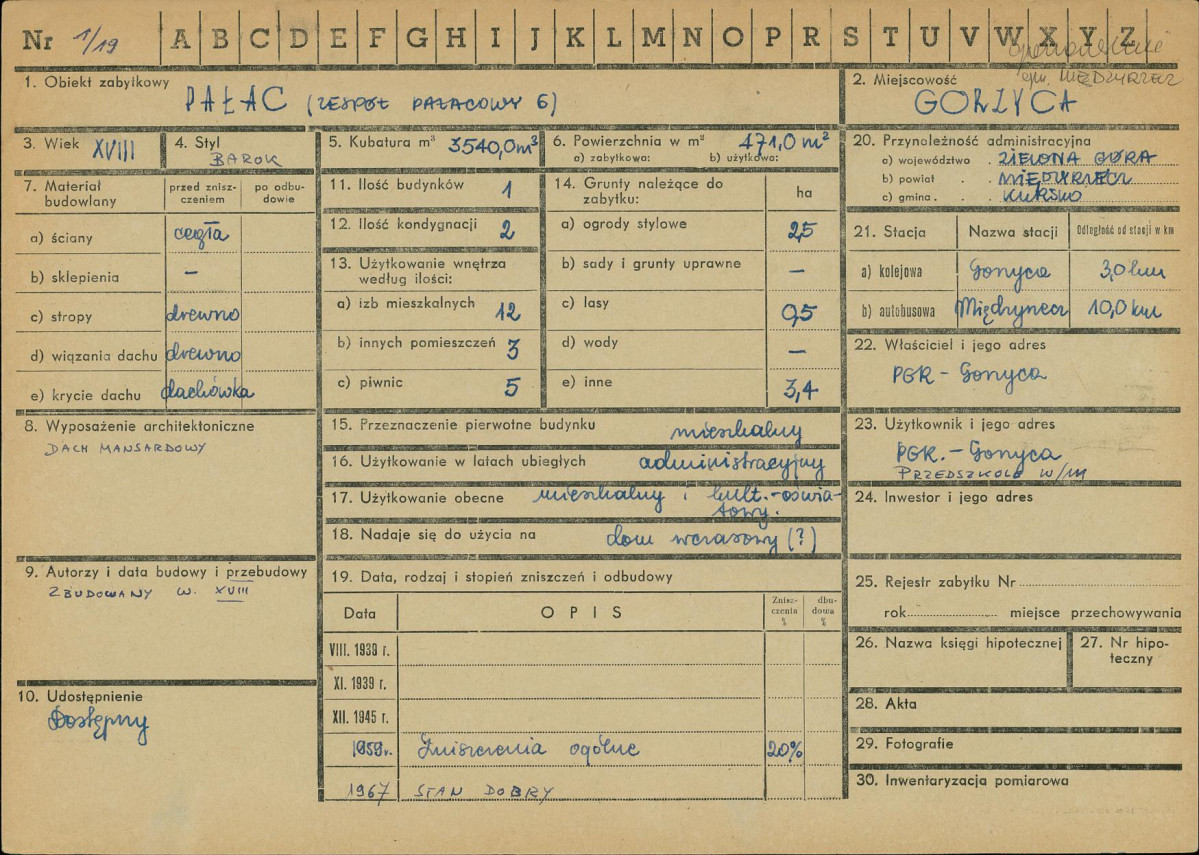 Nr 1/19 A B C D E F G H I J K L M N O P R S T U V W X Y Z
gm. MIĘDZYRZECZ
1. Obiekt zabytkowy
PAŁAC (ZESPÓŁ PAŁACOWY 6)
2. Miejscowość
GORZYCA
3. Wiek XVIII
4. Styl
BAROK
5. Kubatura m³ 3540,0 m³
6. Powierzchnia w m² 471,0 m²
a) zabytkowa: b) użytkowa:
7. Materiał budowlany
przed znisz-
czeniem
po odbu-
dowie
a) ściany cegła
b) sklepienia –
c) stropy drewno
d) wiązania dachu drewno
e) krycie dachu dachówka
8. Wyposażenie architektoniczne
DACH MANSARDOWY
9. Autorzy i data budowy i przebudowy
ZBUDOWANY W. XVIII
10. Udostępnienie
Dostępny
11. Ilość budynków 1
12. Ilość kondygnacji 2
13. Użytkowanie wnętrza
według ilości:
a) izb mieszkalnych 12
b) innych pomieszczeń 3
c) piwnic 5
14. Grunty należące do
zabytku:
ha
a) ogrody stylowe 2,5
b) sady i grunty uprawne –
c) lasy 0,5
d) wody –
e) inne 3,4
15. Przeznaczenie pierwotne budynku mieszkalny
16. Użytkowanie w latach ubiegłych administracyjny
17. Użytkowanie obecne mieszkalny i kult.-oświa-
towy.
18. Nadaje się do użycia na dom wczasowy (?)
19. Data, rodzaj i stopień zniszczeń i odbudowy
Data OPIS
Znisz-
czenia
%
dbu-
dowa
%
VIII. 1939 r.
XI. 1939 r.
XII. 1945 r.
1959 r. Zniszczenia ogólne 20%
1967 STAN DOBRY
20. Przynależność administracyjna
a) województwo . ZIELONA GÓRA
b) powiat . . MIĘDZYRZECZ
c) gmina . . . KURSKO
21. Stacja Nazwa stacji Odległość od stacji w km
a) kolejowa Gorzyca 3,0 km
b) autobusowa Międzyrzecz 10,0 km
22. Właściciel i jego adres
PGR – Gorzyca
23. Użytkownik i jego adres
PGR. – Gorzyca
PRZEDSZKOLE W/M
24. Inwestor i jego adres
25. Rejestr zabytku Nr
rok miejsce przechowywania
26. Nazwa księgi hipotecznej
27. Nr hipo-
teczny
28. Akta
29. Fotografie
30. Inwentaryzacja pomiarowa